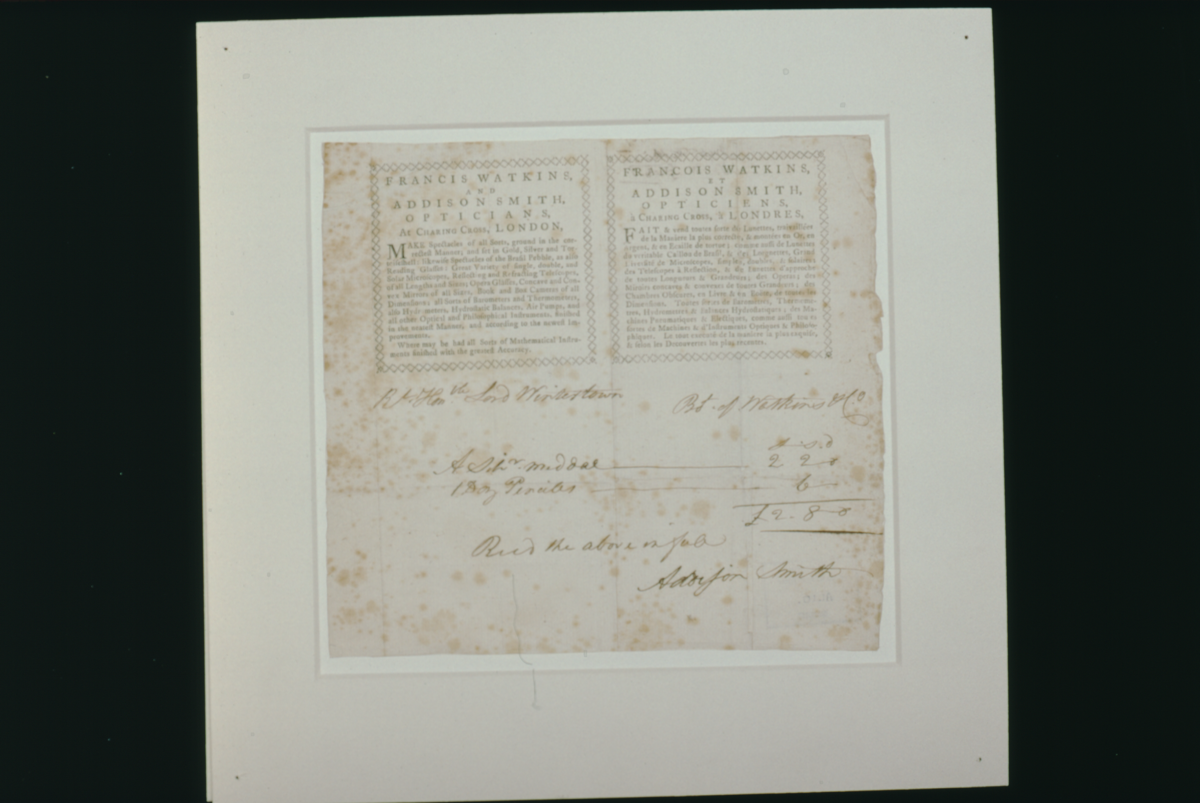 FRANCIS WATKINS,
AND
ADDISON SMITH,
OPTICIANS,
At CHARING CROSS, LONDON,
MAKE Spectacles of all Sorts, ground in the cor-
rectest Manner, and set in Gold, Silver and Tor-
toiseshell: likewise Spectacles of the Brazil Pebble, as also
Reading Glasses: Great Variety of single, double, and
Solar Microscopes, Reflecting and Refracting Telescopes,
of all Lengths and Sizes; Opera Glasses, Concave and Con-
vex Mirrors of all Sizes, Book and Box Cameras of all
Dimensions; all Sorts of Barometers and Thermometers,
also Hydrometers, Hydrostatic Balances, Air Pumps, and
all other Optical and Philosophical Instruments, finished
in the neatest Manner, and according to the newest Im-
provements.
Where may be had all Sorts of Mathematical Instru-
ments finished with the greatest Accuracy.
FRANCOIS WATKINS,
ET
ADDISON SMITH,
OPTICIENS,
à CHARING CROSS, à LONDRES,
FAIT & vend toutes sorte de Lunettes, travaillées
de la Maniere la plus correcte, & montées en Or, en
Argent, & en Ecaille de tortue; comme aussi de Lunettes
de veritable Caillou de Bresil, & des Lorgnettes, Grand
Varieté de Microscopes, simple, double, & solaires
des Télescopes à Reflection, & de Lunettes d'approche
de toutes Longueurs & Grandeurs; des Opera; des
Miroirs concaves & convexes de toutes Grandeurs; des
Chambres Obscures, en Livre & en Boite, de toutes les
Dimensions. Toutes sortes de Barometres, Thermome-
tres, Hydrometres, & Balances Hydrostatiques; des Ma-
chines Pneumatiques & Electriques, comme aussi toutes
sortes de Machines & d'Instrumens Optiques & Philoso-
phiques. Le tout exécuté de la maniere la plus exquise,
& selon les Decouvertes les plus recentes.
Rt. Honble Lord Wintertown
Bt. of Watkins & Co
£ s. d
A Silvr. meddal 2 2 0
1 Doz Penciles 6
£2. 8 0
Recd the above in full
Addison Smith